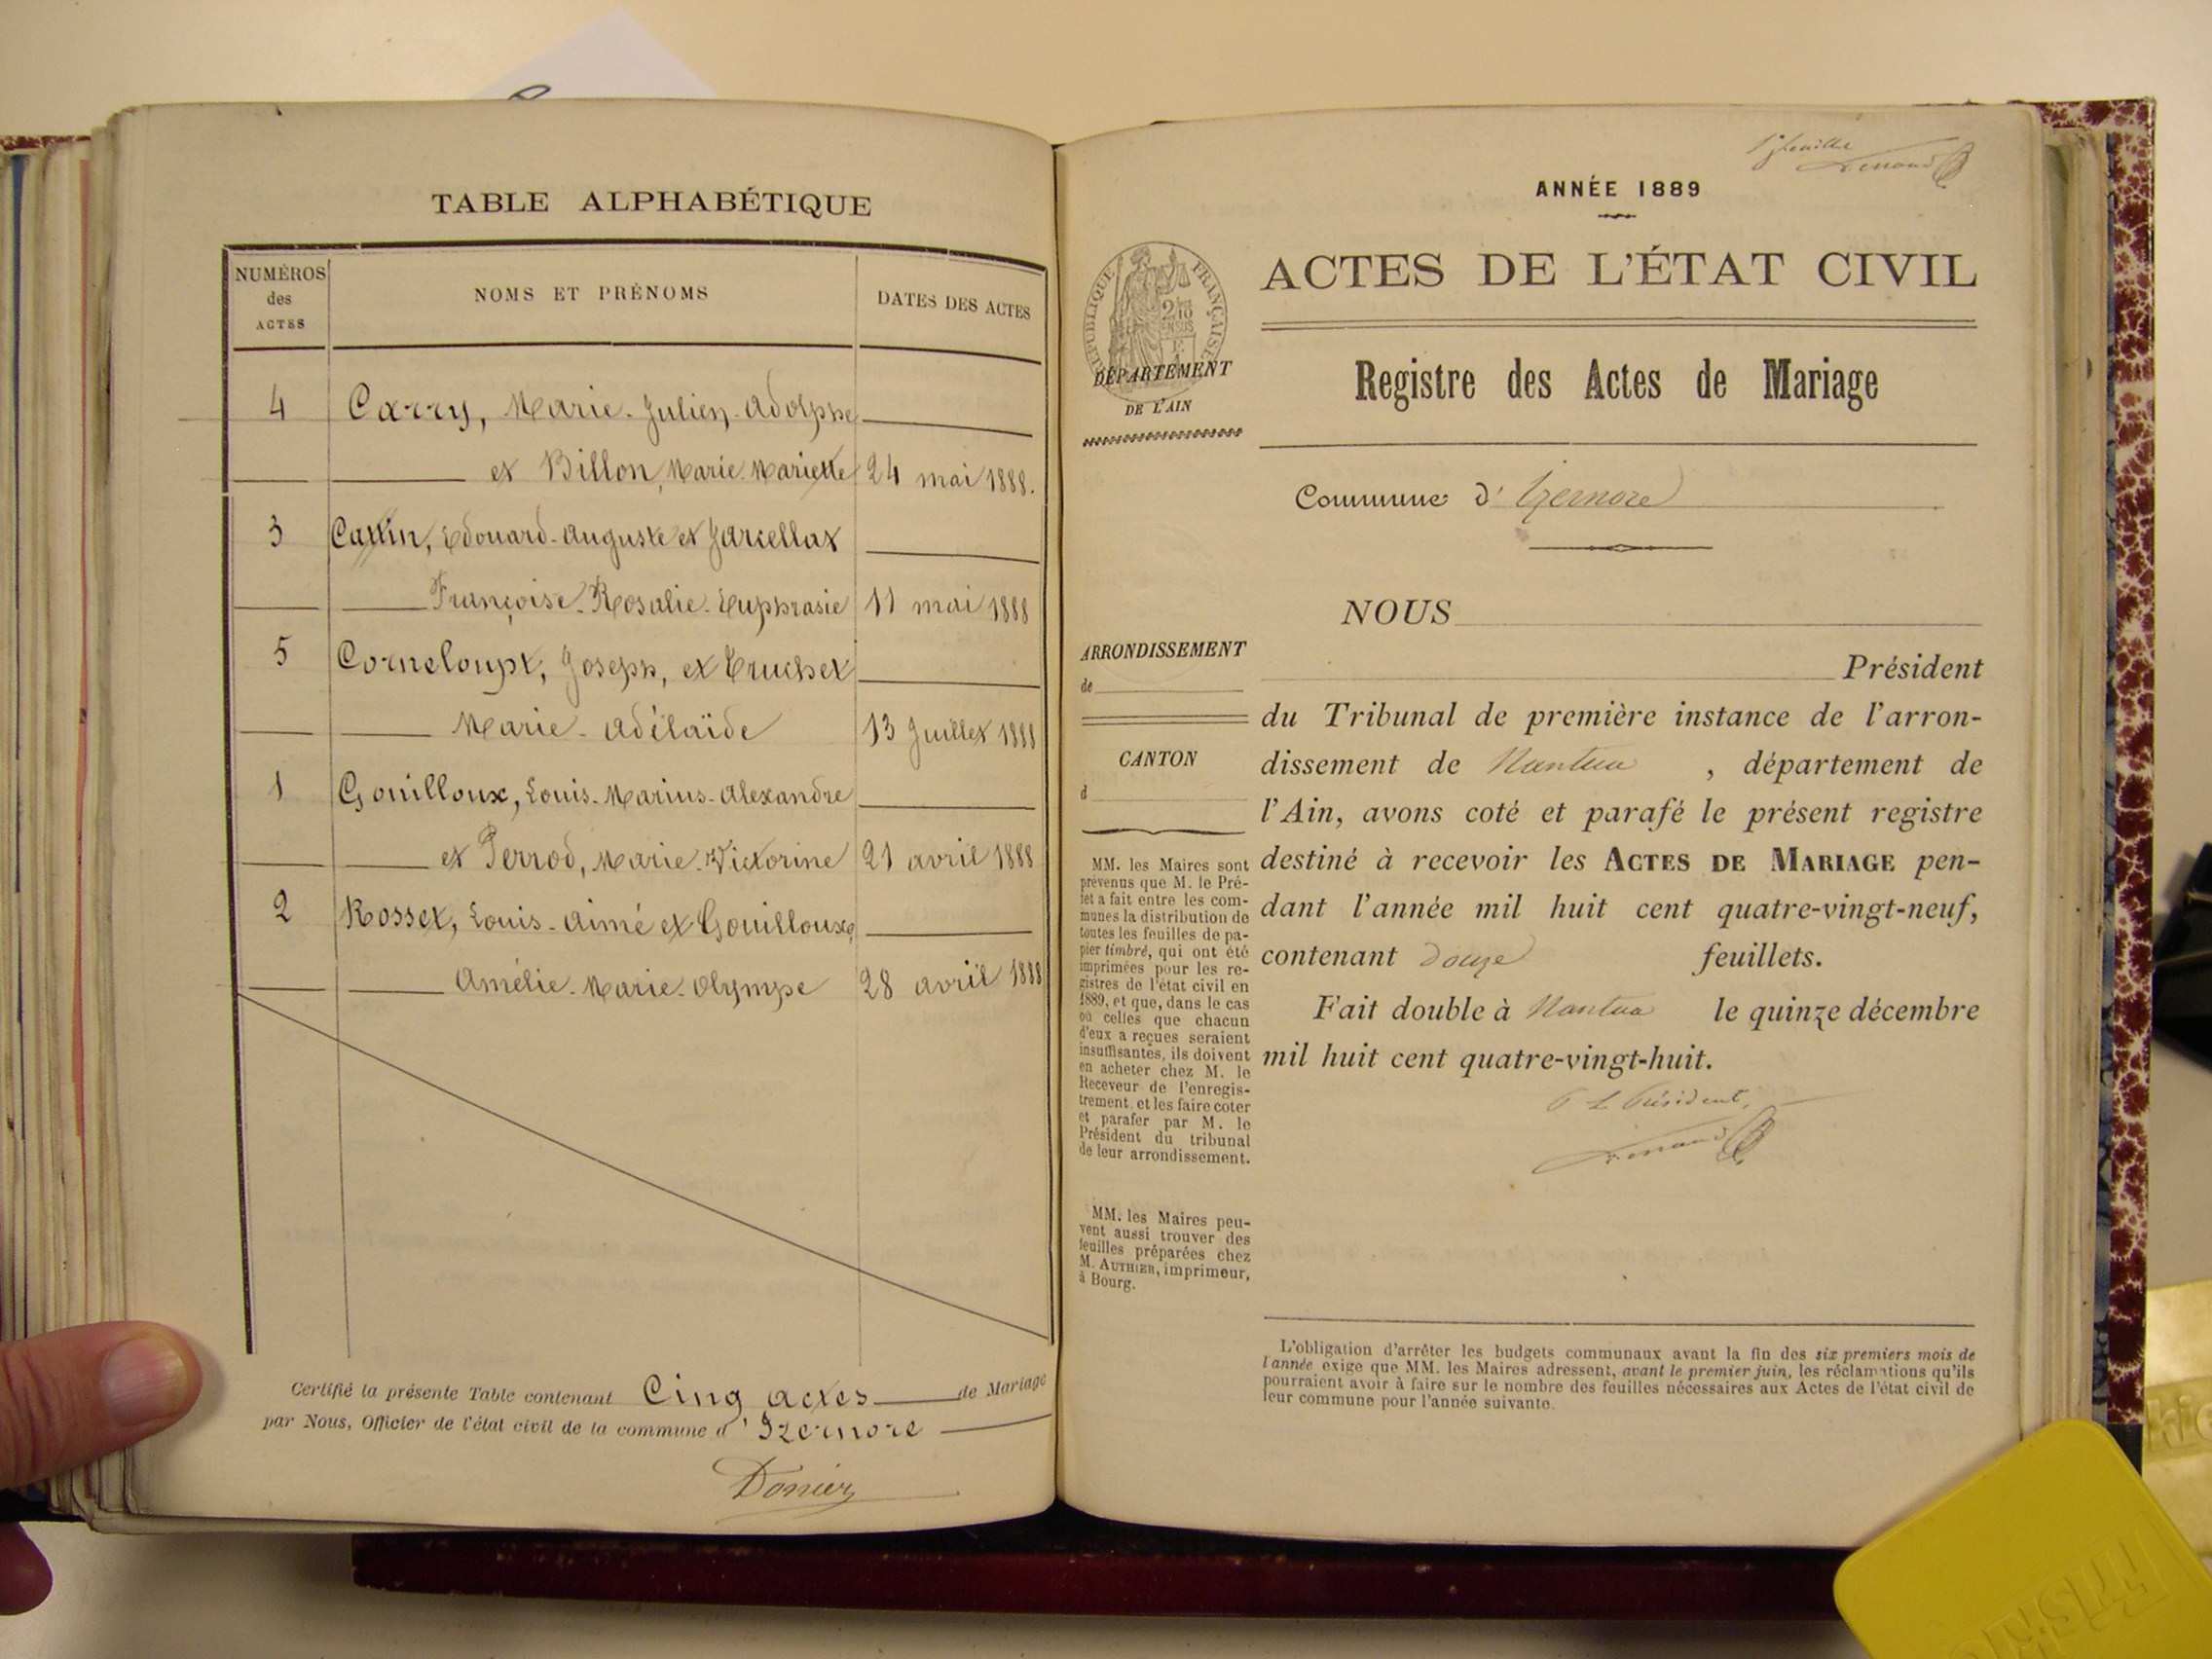 TABLE ALPHABÉTIQUE
NUMÉROS des ACTES
NOMS ET PRÉNOMS
DATES DES ACTES
4 Carry, Marie-Julien-Adolphe
et Billon, Marie-Mariette 24 mai 1888.
3 Cattin, Edouard-Auguste et Jarcellat
Françoise-Rosalie-Euphrasie 11 mai 1888
5 Corneloupt, Joseph, et Truchet
Marie-Adélaïde 13 Juillet 1888
1 Gouilloux, Louis-Marius-Alexandre
et Perrod, Marie-Victorine 21 avril 1888
2 Rosset, Louis-Aimé et Gouilloux,
Amélie-Marie-Olympe 28 avril 1888
Certifié la présente Table contenant Cinq actes de Mariage
par Nous, Officier de l'état civil de la commune d'Izernore
1er feuillet
ANNÉE 1889
RÉPUBLIQUE FRANÇAISE
ACTES DE L'ÉTAT CIVIL
DÉPARTEMENT
DE L'AIN
Registre des Actes de Mariage
Commune d'Izernore
NOUS
Président
du Tribunal de première instance de l'arron-
dissement de Nantua, département de
l'Ain, avons coté et parafé le présent registre
destiné à recevoir les ACTES DE MARIAGE pen-
dant l'année mil huit cent quatre-vingt-neuf,
contenant douze feuillets.
Fait double à Nantua le quinze décembre
mil huit cent quatre-vingt-huit.
P Le Président,
ARRONDISSEMENT
de
CANTON
d
MM. les Maires sont
prévenus que M. le Pré-
fet a fait entre les com-
munes la distribution de
toutes les feuilles de pa-
pier timbré, qui ont été
imprimées pour les re-
gistres de l'état civil en
1889, et que, dans le cas
où celles que chacun
d'eux a reçues seraient
insuffisantes, ils doivent
en acheter chez M. le
Receveur de l'enregis-
trement, et les faire coter
et parafer par M. le
Président du tribunal
de leur arrondissement.
MM. les Maires peu-
vent aussi trouver des
feuilles préparées chez
M. AUTHIER, imprimeur,
à Bourg.
L'obligation d'arrêter les budgets communaux avant la fin des six premiers mois de
l'année exige que MM. les Maires adressent, avant le premier juin, les réclamations qu'ils
pourraient avoir à faire sur le nombre des feuilles nécessaires aux Actes de l'état civil de
leur commune pour l'année suivante.